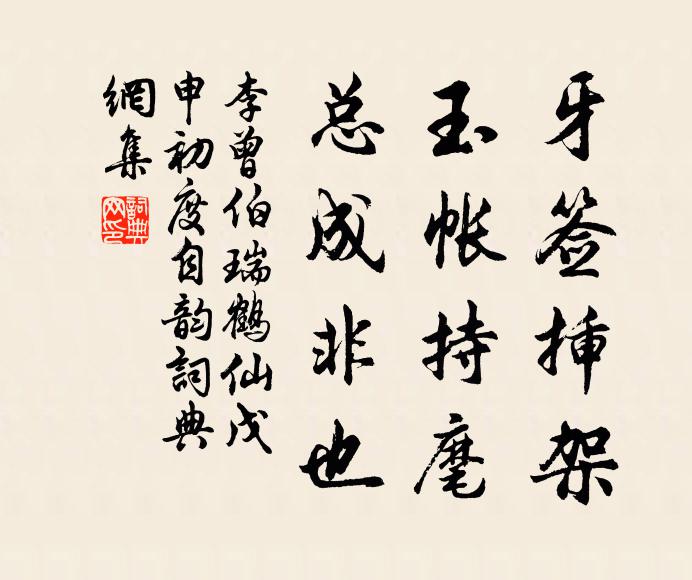 牙签揷架
玉帐持麾
总成非也
李曾伯瑞鹤仙戊
申初度自韵詞典
網集
詞典
网印